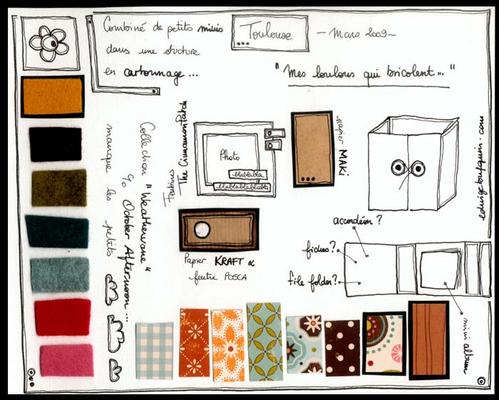 Combiné de petits minis
dans une structure
en cartonnage...
Toulouse
- Mars 2009 -
"Mes loulous qui bricolent..."
Collection "Weathervane"
% October Afternoon...
manque les petits
Feutrines
The Cinnamon Patch
Photo
blablabla
blablablablabla
papier MAKI
Papier KRAFT &
feutre POSCA
accordéon ?
fiches ?
file folder ?
mini album